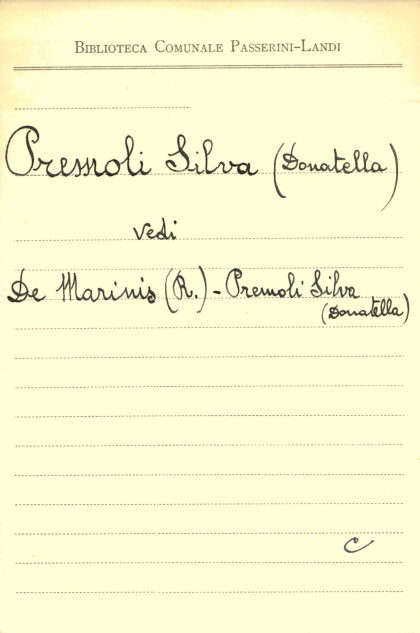 BIBLIOTECA COMUNALE PASSERINI-LANDI
Premoli Silva (Donatella)
vedi
De Marinis (R.) - Premoli Silva
(Donatella)
C